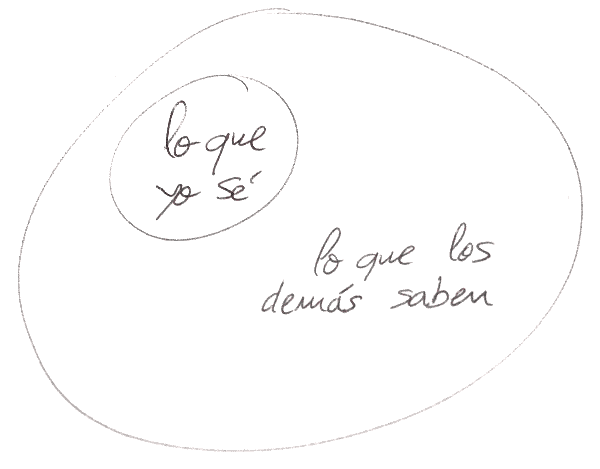 lo que
yo sé
lo que los
demás saben